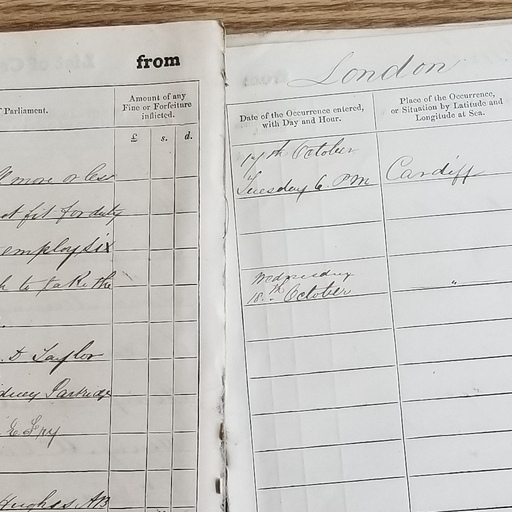 from
f Parliament.
Amount of any
Fine or Forfeiture
inflicted.
£ s. d.
more or less
ot fit for duty
employ six
to take the
D Taylor
Hughes AB
London
Date of the Occurrence entered,
with Day and Hour.
Place of the Occurrence,
or Situation by Latitude and
Longitude at Sea.
17th October
Tuesday 6. PM
Cardiff
Wednesday
18th October
"